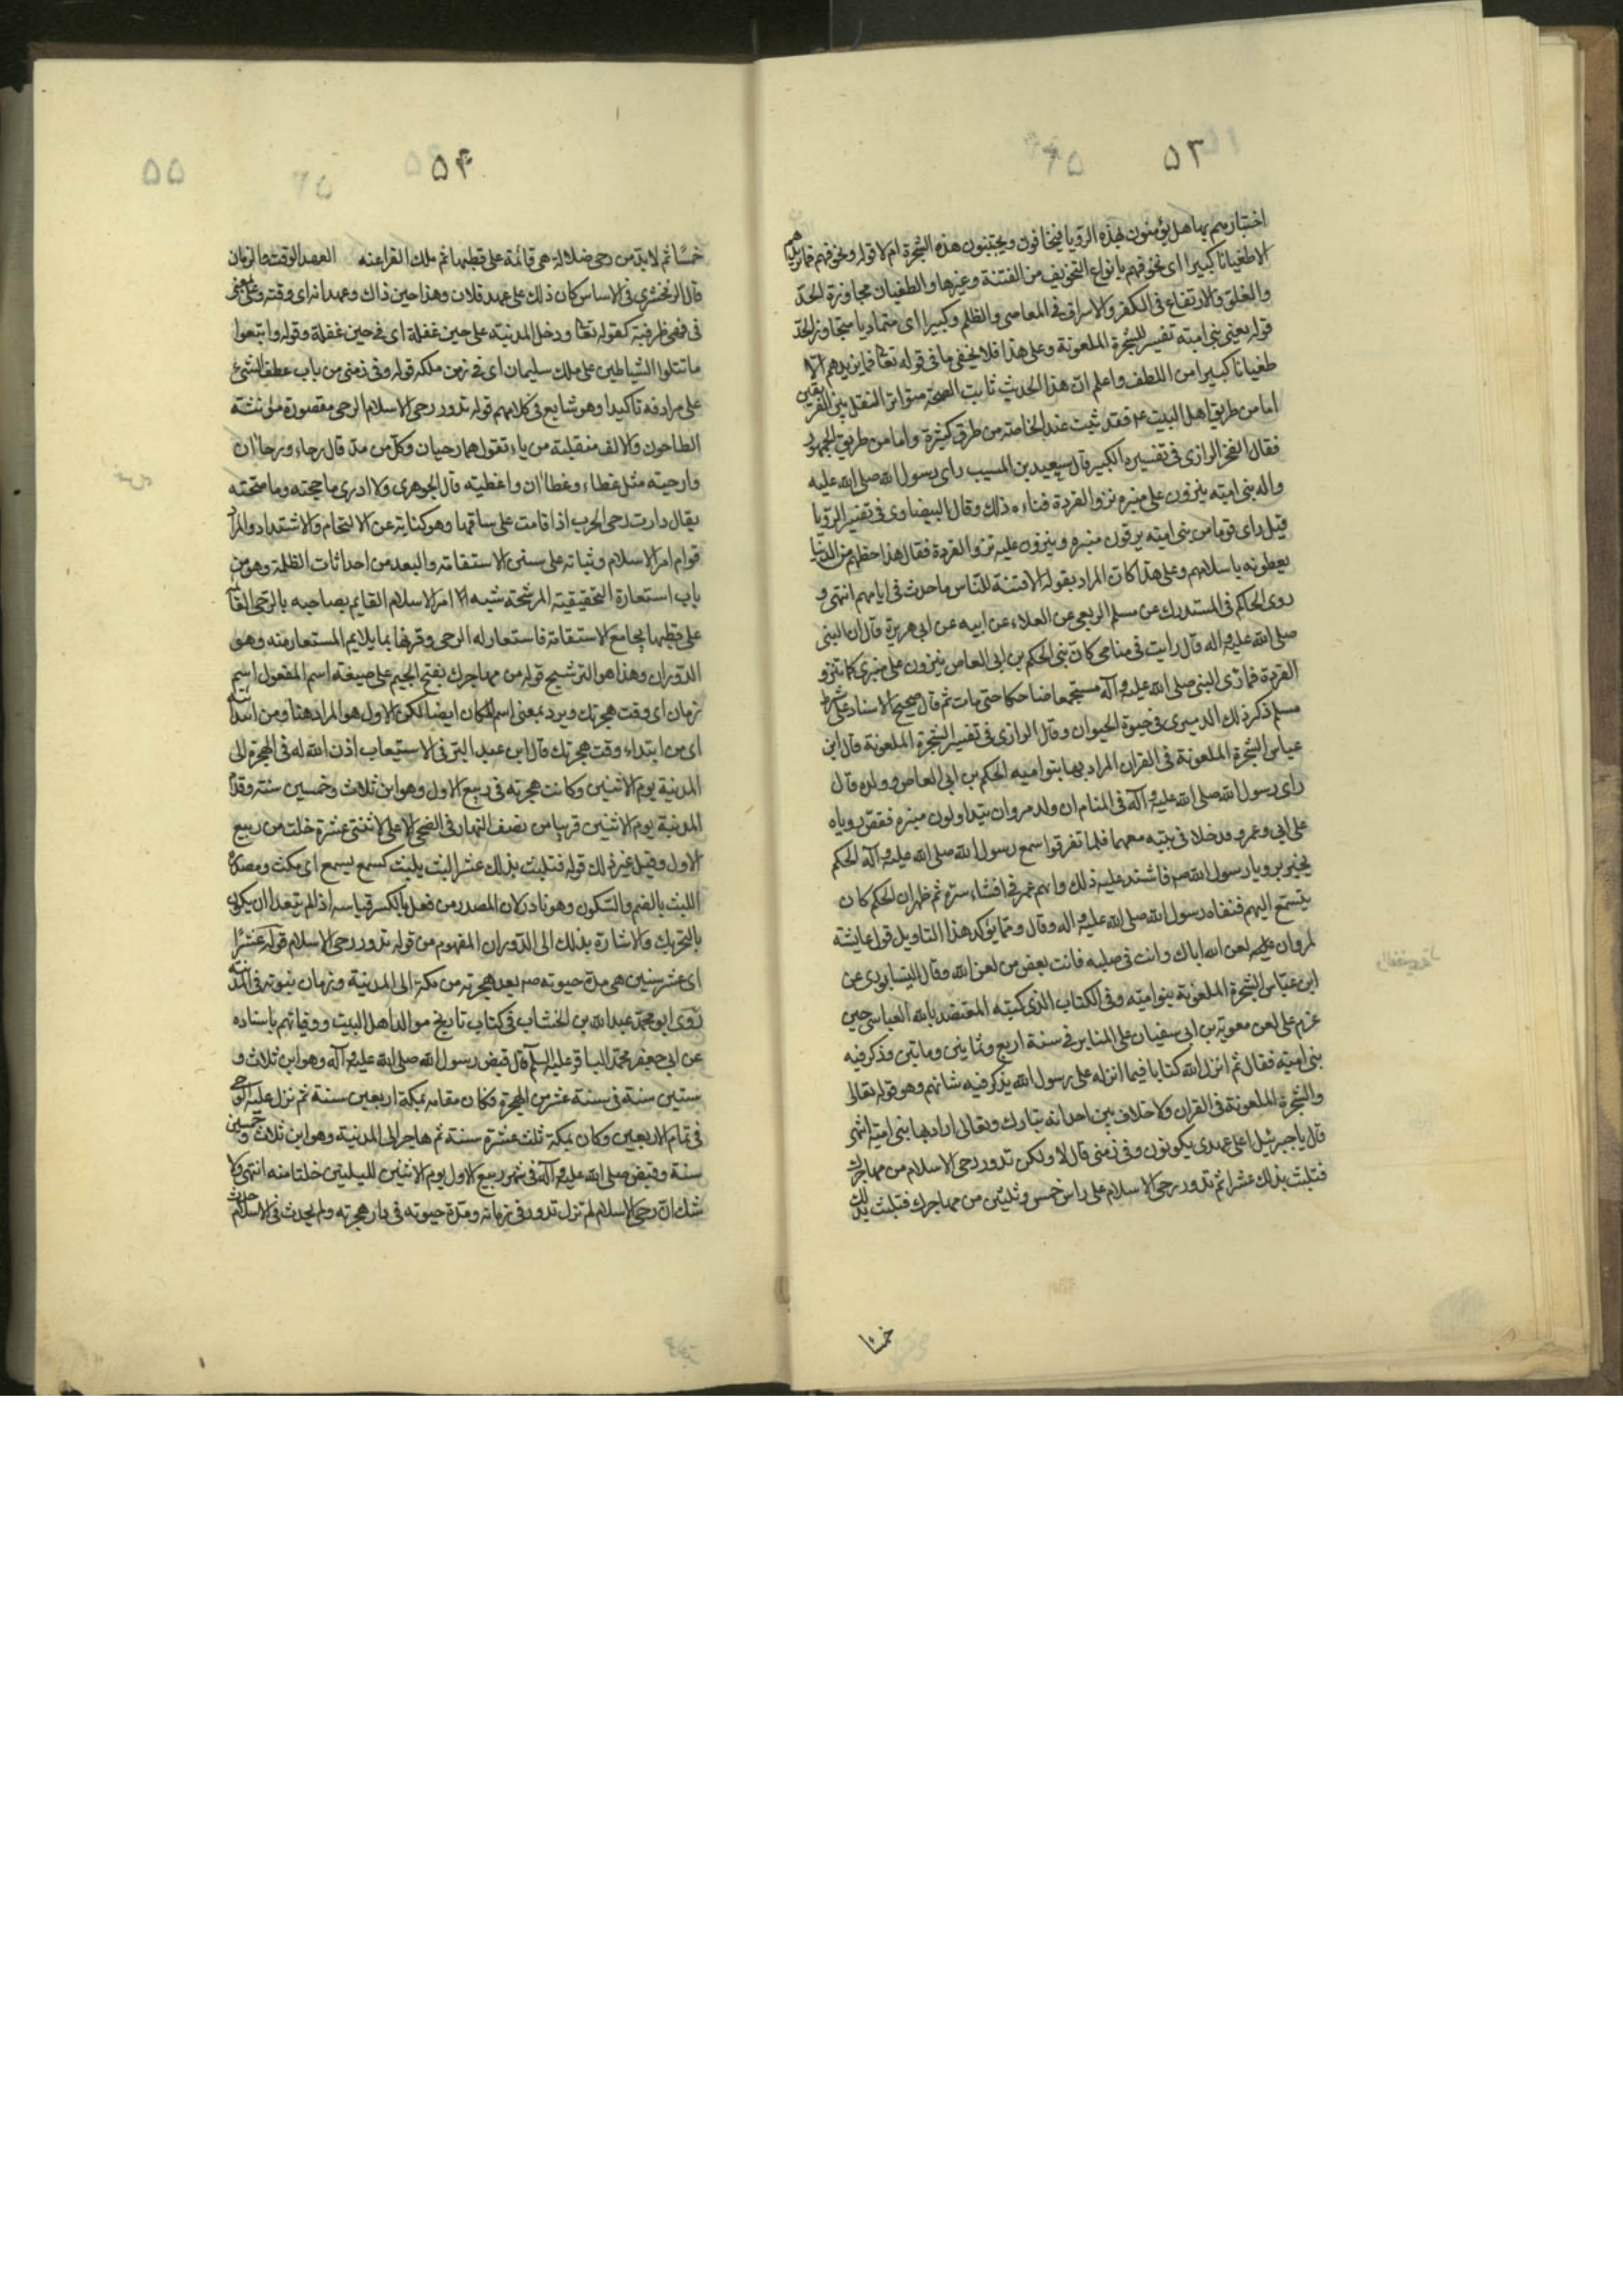 ۵۳
اختبارهم بها هل يؤمنون بهذه الرؤيا فيخافون ويجتنبون هذه الشجرة ام لا قوله ونخوفهم فما يزيدهم
الا طغيانا كبيرا اى نخوفهم بانواع التخويف من الفتنة وغيرها والطغيان مجاوزة الحدّ
والغلو والارتفاع فى الكفر والاسراف فى المعاصى والظلم وكبيرا اى متماديا متجاوز الحدّ
قوله يعنى بنى اميّة تفسير للشجرة الملعونة وعلى هذا فلا يخفى ما فى قوله تعا فما يزيدهم الا
طغيانا كبيرا من اللطف واعلم انّ هذا الحديث ثابت الصحّة متواتر النقل بين الفريقين
اما من طريق اهل البيت ع فقد ثبت عند الخاصّة من طرق كثيرة واما من طريق الجمهور
فقال الفخر الرازى فى تفسيره الكبير قال سعيد بن المسيب راى رسول الله صلى الله عليه
واله بنى اميّة ينزون على منبره نزو القردة فساءه ذلك وقال البيضاوى فى تفسير الرؤيا
قيل راى قوما من بنى اميّة يرقون منبره وينزون عليه نزو القردة فقال هذا حظهم من الدنيا
يعطونه باسلامهم وعلى هذا كان المراد بقوله الا فتنة للناس ما حدث فى ايامهم انتهى و
روى الحاكم فى المستدرك عن مسلم الربعى عن العلاء عن ابيه عن ابى هريرة قال ان النبى
صلى الله عليه واله قال رايت فى منامى كان بنى الحكم بن ابى العاص ينزون على منبرى كما تنزو
القردة فما رئى النبى صلى الله عليه وآله مستجمعا ضاحكا حتى مات ثم قال صحيح الاسناد على شرط
مسلم ذكر ذلك الدميرى فى حيوة الحيوان وقال الرازى فى تفسير الشجرة الملعونة قال ابن
عباس الشجرة الملعونة فى القران المراد بها بنو اميه الحكم بن ابى العاص وولده قال
راى رسول الله صلى الله عليه وآله فى المنام ان ولد مروان يتداولون منبره فقصّ روياه
على ابى وعمر وقد خلا فى بيته معهما فلما تفرقوا سمع رسول الله صلى الله عليه وآله الحكم
يخبر برويا رسول الله ص فاشتد عليه ذلك واتهم عمر فى افشاء سرّه ثم ظهر ان الحكم كان
يتسمع اليهم فنفاه رسول الله صلى الله عليه واله وقال ومما يؤكد هذا التاويل قول عايشة
لمروان لعن الله اباك وانت فى صلبه فانت بعض من لعن الله وقال النيسابورى عن
ابن عبّاس الشجرة الملعونة بنو اميّة وفى الكتاب الذى كتبه المعتضد بالله العباسى حين
عزم على لعن معوية بن ابى سفيان على المنابر فى سنة اربع وثمانين ومايتين وذكر فيه
بنى اميّة فقال ثم انزل الله كتابا فيما انزله على رسول الله يذكر فيه شانهم وهو قوله تعالى
والشجرة الملعونة فى القران ولا خلاف بين احد انه تبارك وتعالى اراد بها بنى اميّة انتهى
قال يا جبرئيل اعلى عهدى يكونون وفى زمنى قال لا ولكن تدور رحى الاسلام من مهاجرك
فتلبث بذلك عشرا ثم تدور رحى الاسلام على راس خمس وثلثين من مهاجرك فتلبث بذلك
خمسًا
۵۴
خمسًا ثم لا بدّ من رحى ضلالة هى قائمة على قطبها ثم ملك الفراعنه العهد الوقت والزمان
قال الزمخشرى فى الاساس كان ذلك على عهد فلان وهذا حين ذاك وعهدانه اى وقته وعلى بمعنى
فى فهى ظرفية كقوله تعا ودخل المدينة على حين غفلة اى فى حين غفلة وقوله واتبعوا
ما تتلوا الشياطين على ملك سليمان اى فى زمن ملكه قوله وفى زمنى من باب عطف الشئ
على مرادفه تاكيدا وهو شايع فى كلامهم قوله تدور رحى الاسلام الرحى مقصورة مؤنثة
الطاحون والالف منقلبة من ياء تقول هما رحيان وكلّ من مدّ قال رحاء ورحاان
وارحية مثل غطاء وغطاان واغطيه قال الجوهرى ولا ادرى ما حجته وما صحّته
يقال دارت رحى الحرب اذا قامت على ساقها وهو كناية عن الالتحام والاشتداد والمراد
قوام امر الاسلام وثباته على سنن الاستقامة والبعد من احداثات الظلمة وهو من
باب استعارة التحقيقية المرشحة شبه امر الاسلام القايم بصاحبه بالرحى القائمة
على قطبها بجامع الاستقامة فاستعار له الرحى وقرنها بما يلايم المستعار منه وهو
الدّوران وهذا هو الترشيح قوله من مهاجرك بفتح الجيم على صيغة اسم المفعول اسم
زمان اى وقت هجرتك ويرد بمعنى اسم المكان ايضا لكن الاول هو المراد هنا ومن ابتدائيه
اى من ابتداء وقت هجرتك قال ابن عبد البر فى الاستيعاب اذن الله له فى الهجرة الى
المدينة يوم الاثنين وكانت هجرته فى ربيع الاول وهو ابن ثلاث وخمسين سنة وقدم
المدينة يوم الاثنين قريبا من نصف النهار فى الضحى الاعلى لاثنتى عشرة خلت من ربيع
الاول وقيل غير ذلك قوله فتلبث بذلك عشرا لبث يلبث كسمع يسمع اى مكث ومصدره
اللبث بالضم والسّكون وهو نادر لان المصدر من فعل بالكسر قياسه اذا لم يتعد ان يكون
بالتحريك والاشارة بذلك الى الدّوران المفهوم من قوله تدور رحى الاسلام قوله عشرًا
اى عشر سنين هى مدة حيوته ص بعد هجرته من مكة الى المدينة وزمان نبوته فى المدينة
روى ابو محمّد عبدالله بن الخشاب فى كتاب تاريخ مواليد اهل البيت ووفياتهم باسناده
عن ابى جعفر محمّد الباقر عليه السلم قال قبض رسول الله صلى الله عليه وآله وهو ابن ثلاث و
ستين سنة فى سنة عشر من الهجرة وكان مقامه بمكة اربعين سنة ثم نزل عليه الوحى
فى تمام الاربعين وكان بمكة ثلث عشرة سنة ثم هاجر الى المدينة وهو ابن ثلاث وخمسين
سنة وقبض صلى الله عليه وآله فى شهر ربيع الاول يوم الاثنين لليلتين خلتا منه انتهى ولا
شك انّ رحى الاسلام لم تزل تدور فى زمانه ومدّة حيوته فى دار هجرته ولم يحدث فى الاسلام حدث
۵۵